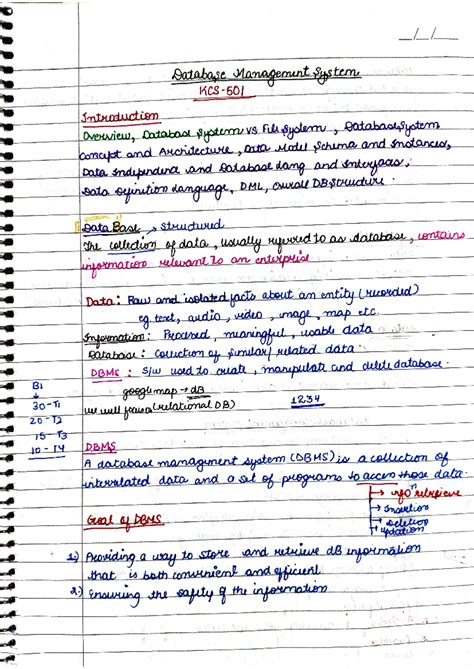 __/__/__
Database Management System
KCS-501
Introduction
Overview, Database System vs File System, Database System
concept and Architecture, Data Model, Schema and Instances,
Data Independence and Database Lang. and Interfaces,
Data Definition Language, DML, Overall DB Structure.
Data Base → Structured
The collection of data, usually referred to as database, contains
information relevant to an enterprise
Data: Raw and isolated facts about an entity (recorded)
eg. text, audio, video, image, map etc.
Information: Processed, meaningful, usable data
Database: Collection of similar/related data.
DBMS: S/w used to create, manipulate and delete database.
google map → dB
we will focus (relational DB)
1234
B1
↓
30-T1
20-T2
15-T3
10-T4
DBMS
A database management system (DBMS) is a collection of
interrelated data and a set of programs to access those data.
→ info retrieve
→ Insertion
→ Deletion
→ Updation
Goal of DBMS
1.) Providing a way to store and retrieve dB information
that is both convenient and efficient
2.) Ensuring the safety of the information